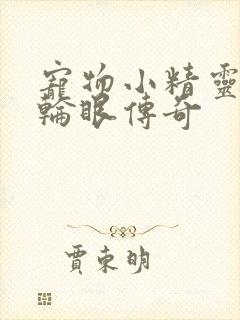 寵物小精靈
輪眼傳奇
賈東明